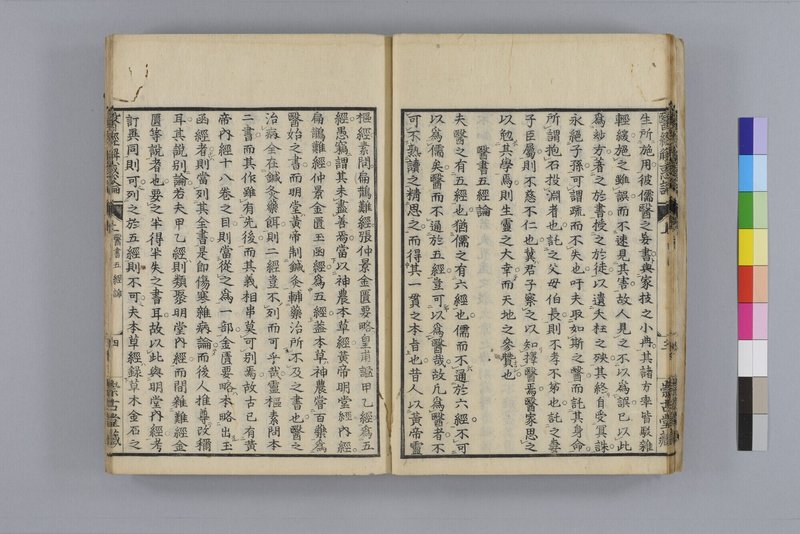 生所施用彼儒醫之妄書與家技之小冊其諸方率皆駁雜
輕緩施之雖誤而不速見其害故人見之不以為誤已以此
為妙方著之於書授之於徒以遺夭枉之殃其終自受冥誅
永絕子孫可謂疏而不失也吁夫取如斯之醫而託其身命
所謂抱石投淵者也託之父母伯長則不孝不第也託之妻
子臣屬則不慈不仁也冀君子察之以知擇醫焉醫家思之
以勉其學焉則生靈之大幸而天地之參贊也
醫書五經論
夫醫之有五經也猶儒之有六經也儒而不通於六經不可
以為儒矣醫而不通於五經豈可以為醫哉故凡為醫者不
可不熟讀之精思之而得其一貫之本旨也昔人以黃帝靈
樞經素問扁鵲難經張仲景金匱要略皇甫謐甲乙經為五
經愚竊謂其未盡善焉當以神農本草經黃帝明堂經內經
扁鵲難經仲景金匱玉函經為五經蓋本草神農嘗百藥為
醫始之書而明堂黃帝制鍼灸輔藥治所不及之書也醫之
治病全在鍼灸藥餌則二經豈不列而可乎哉靈樞素問本
二書而其作雖有先後而其義相串莫可別焉故古已有黃
帝內經十八卷之目則當從之為一部金匱要略本略出玉
函經者則當列其全書是即傷寒雜病論而後人推尊改稱
耳其說別論若夫甲乙經則類聚明堂內經而間雜難經金
匱等說者也要之半得半失之書耳故以此與明堂內經考
訂異同則可列之於五經則不可夫本草經錄草木金石之
醫經解惑論
上
醫書五經論
四
柴古堂藏